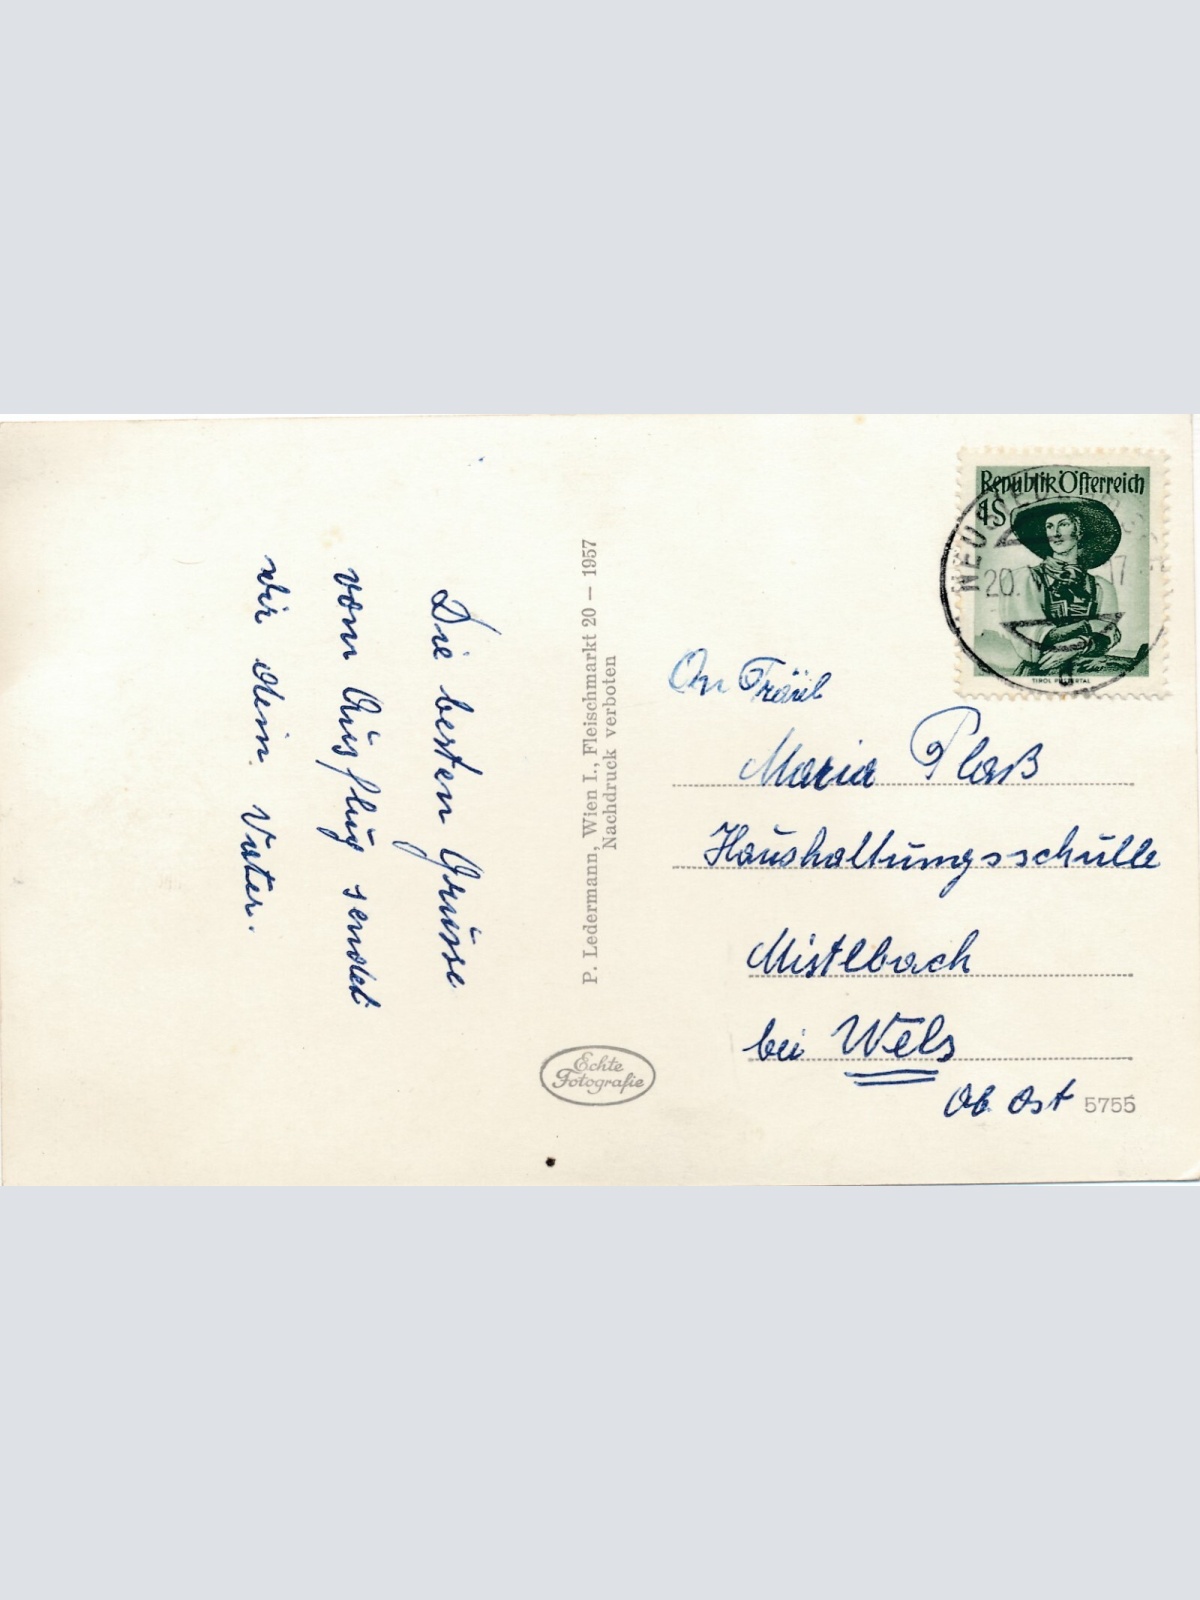 Die besten Grüsse
vom Ausflug sendet
dir dein Vater.
P. Ledermann, Wien I., Fleischmarkt 20 — 1957
Nachdruck verboten
Echte
Fotografie
Republik Österreich
1S
TIROL PUSTERTAL
NEUSIEDL
20. 17
d
An Fräul
Maria Plaß
Haushaltungsschulle
Mistlbach
bei Wels
Ob. Öst
5755